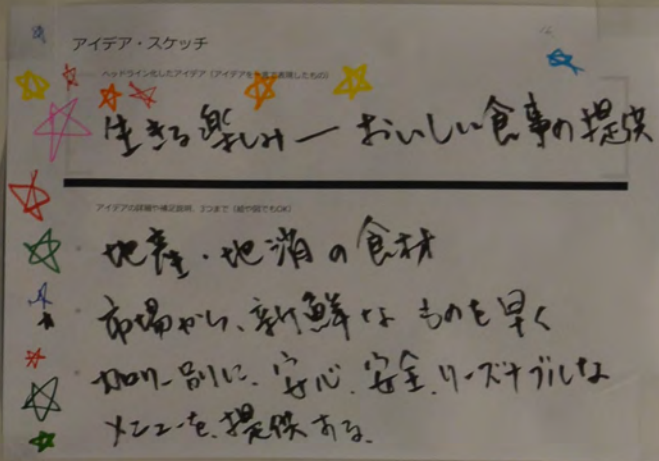 アイデア・スケッチ
ヘッドライン化したアイデア（アイデアを一言で表現したもの）
生きる楽しみー おいしい食事の提供
アイデアの詳細や補足説明、3つまで（絵や図でもOK）
・地産・地消の食材
・市場から、新鮮なものを早く
・カロリー別に、安心、安全、リーズナブルな
メニューを、提供する。